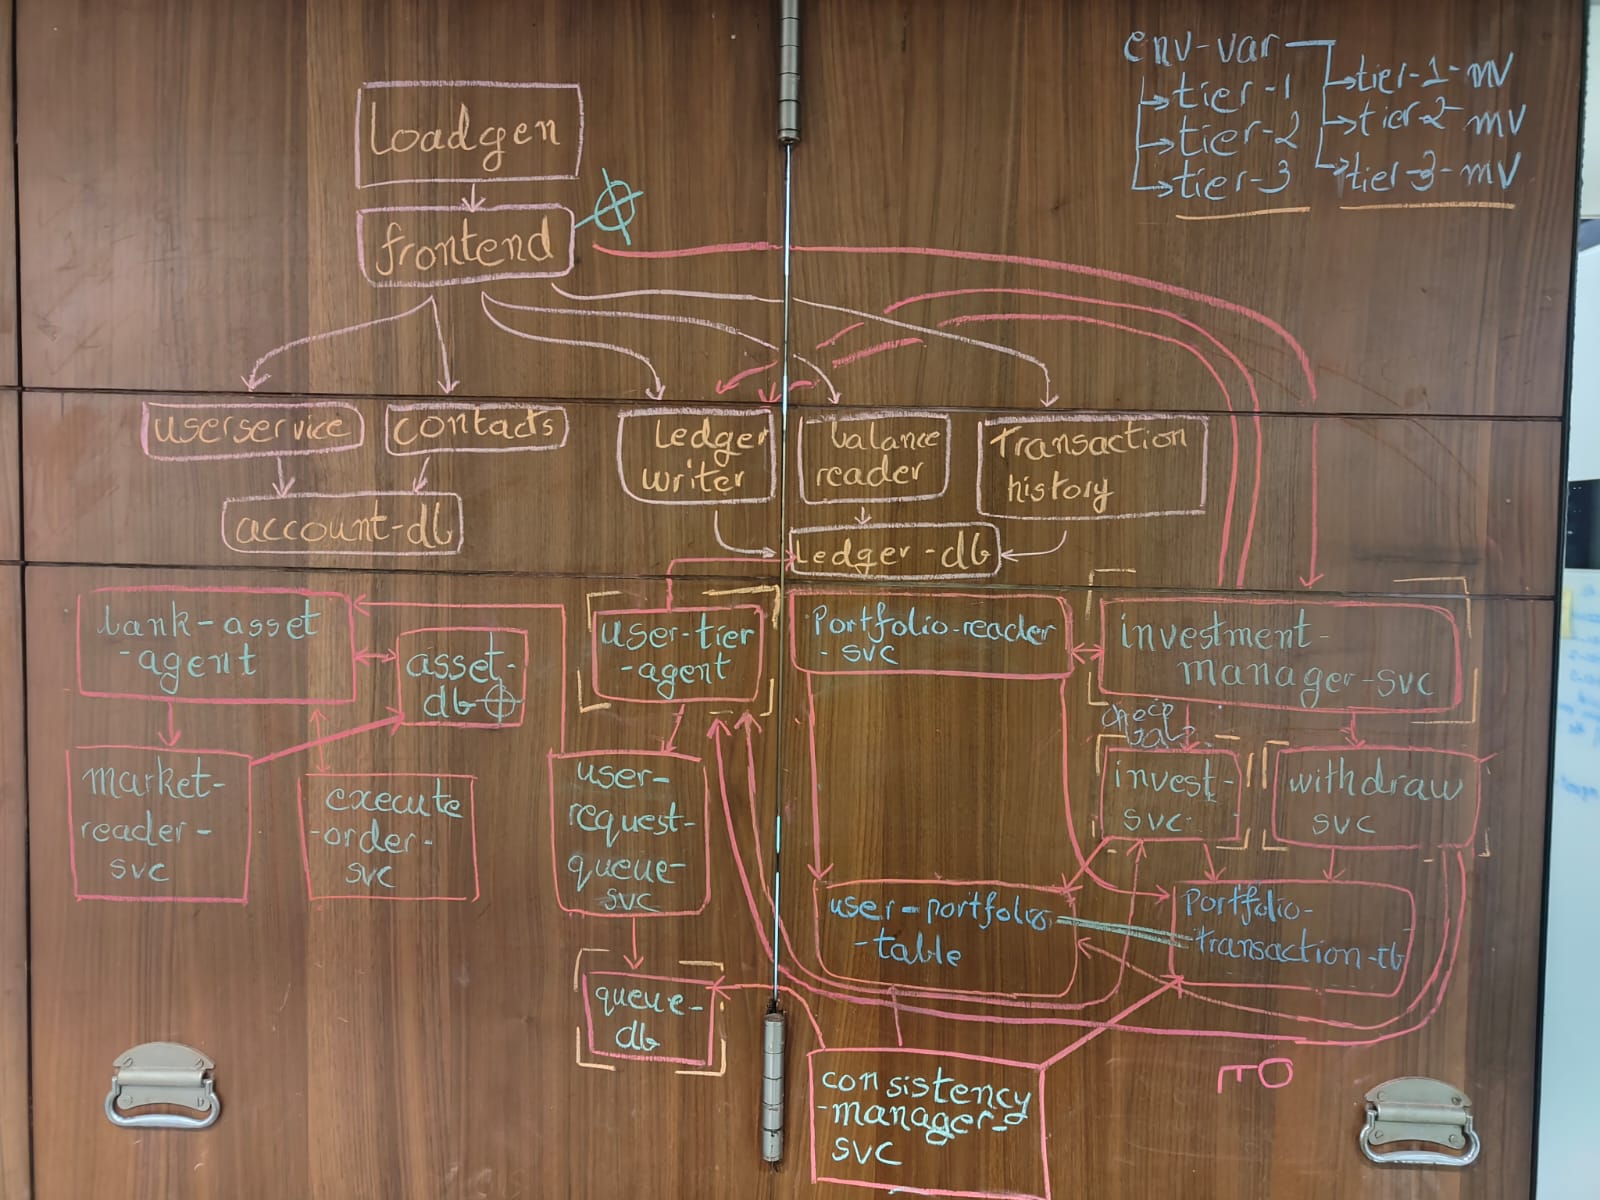 env-var
tier-1
tier-2
tier-3
tier-1-mv
tier-2-mv
tier-3-mv
Loadgen
frontend
userservice
contacts
account-db
Ledger
writer
balance
reader
Transaction
history
Ledger-db
bank-asset
-agent
asset-
db
market-
reader-
svc
execute
-order-
svc
user-tier
-agent
user-
request-
queue-
svc
queue-
db
Portfolio-reader
-svc
investment-
manager-svc
check
bal
invest-
svc
withdraw
svc
user-portfolio
-table
Portfolio-
transaction-tb
consistency
-manager-
svc